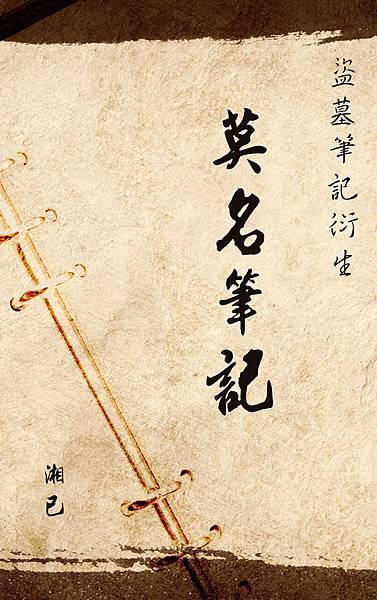 盜墓筆記衍生
莫名筆記
湘已